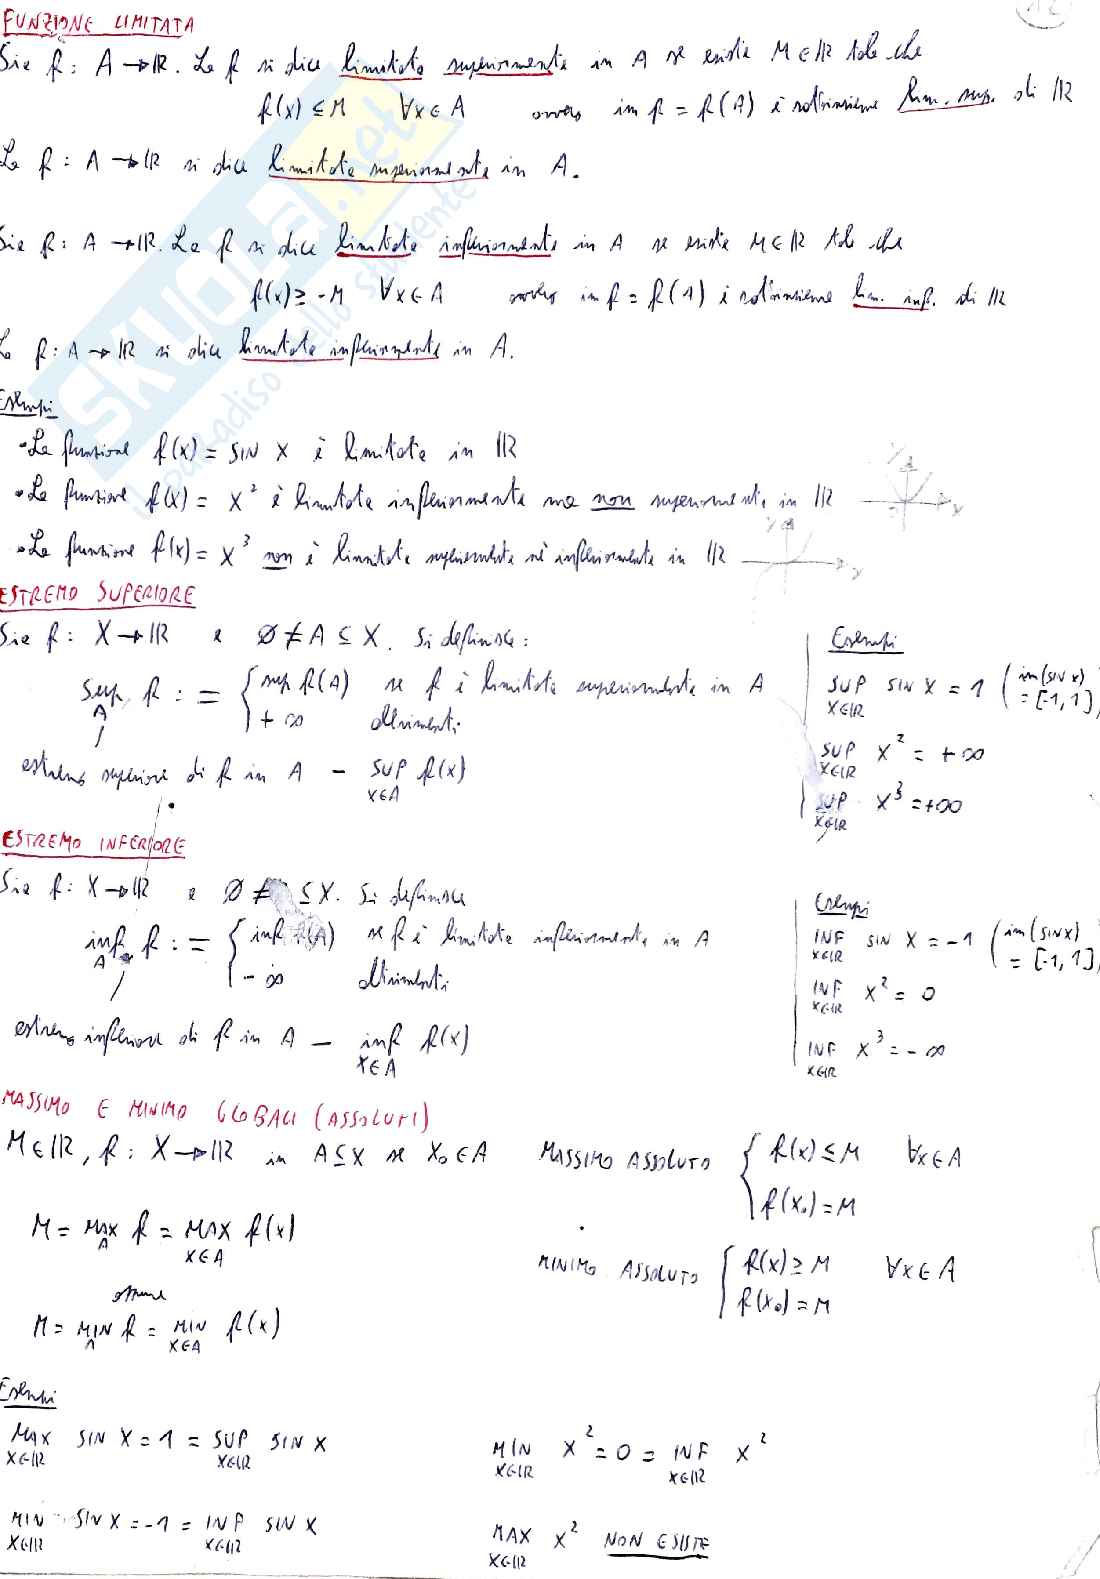 12
FUNZIONE LIMITATA
Sia f: A → ℝ. La f si dice limitata superiormente in A se esiste M∈ℝ tale che
f(x) ≤ M ∀x∈A ovvero im f = f(A) è sottoinsieme lim. sup. di ℝ
La f: A → ℝ si dice limitata superiormente in A.
Sia f: A → ℝ. La f si dice limitata inferiormente in A se esiste M∈ℝ tale che
f(x) ≥ -M ∀x∈A ovvero im f = f(A) è sottoinsieme lim. inf. di ℝ
La f: A → ℝ si dice limitata inferiormente in A.
Esempi
• La funzione f(x) = SIN X è limitata in ℝ
• La funzione f(x) = X² è limitata inferiormente ma non superiormente in ℝ
• La funzione f(x) = X³ non è limitata superiormente nè inferiormente in ℝ
ESTREMO SUPERIORE
Sia f: X → ℝ e ∅ ≠ A ⊆ X. Si definisce:
sup_A f := { sup f(A) se f è limitata superiormente in A
+∞ altrimenti
estremo superiore di f in A – SUP_{X∈A} f(x)
Esempi
SUP_{X∈ℝ} SIN X = 1 (im(SIN X) = [-1,1])
SUP_{X∈ℝ} X² = +∞
SUP_{X∈ℝ} X³ = +∞
ESTREMO INFERIORE
Sia f: X → ℝ e ∅ ≠ ⊆ X. Si definisce
inf_A f := { inf f(A) se f è limitata inferiormente in A
-∞ altrimenti
estremo inferiore di f in A – inf_{X∈A} f(x)
Esempi
INF_{X∈ℝ} SIN X = -1 (im(SIN X) = [-1,1])
INF_{X∈ℝ} X² = 0
INF_{X∈ℝ} X³ = -∞
MASSIMO E MINIMO GLOBALI (ASSOLUTI)
M∈ℝ, f: X → ℝ in A⊆X se X₀∈A
MASSIMO ASSOLUTO { f(x) ≤ M ∀x∈A
f(x₀) = M
M = MAX_A f = MAX_{X∈A} f(x)
MINIMO ASSOLUTO { f(x) ≥ M ∀x∈A
f(x₀) = M
oppure
M = MIN_A f = MIN_{X∈A} f(x)
Esempi
MAX_{X∈ℝ} SIN X = 1 = SUP_{X∈ℝ} SIN X
MIN_{X∈ℝ} X² = 0 = INF_{X∈ℝ} X²
MIN_{X∈ℝ} SIN X = -1 = INF_{X∈ℝ} SIN X
MAX_{X∈ℝ} X² NON ESISTE
SKUOLA.net
il paradiso dello studente